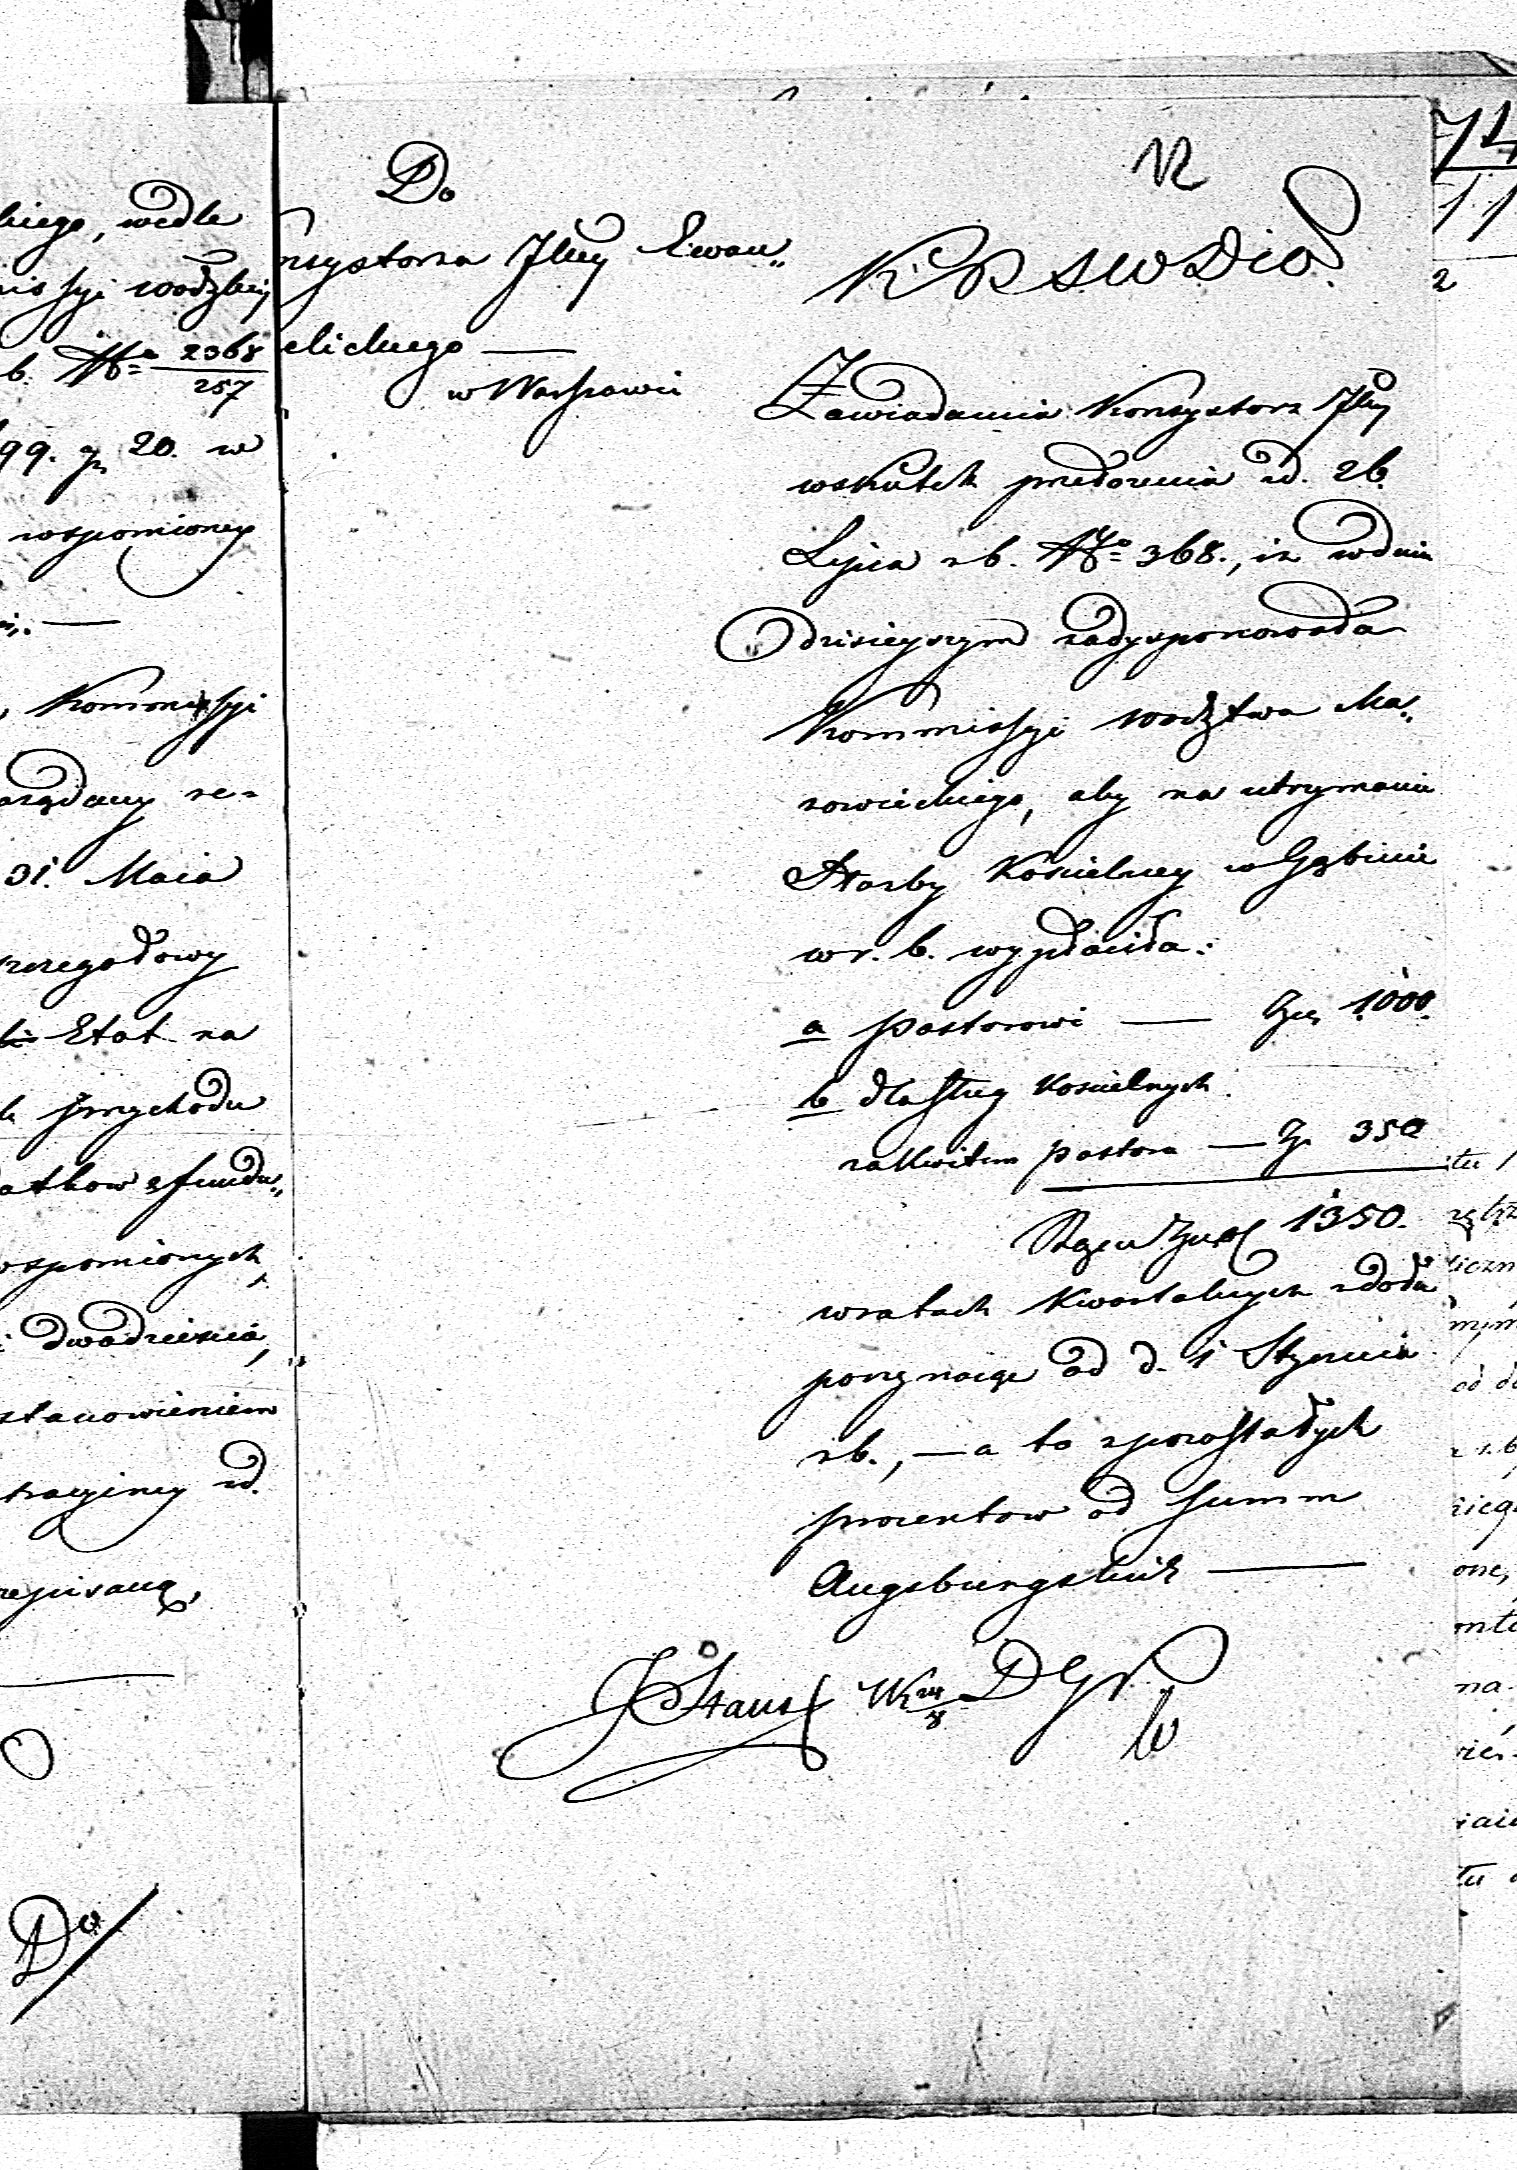 kiego, wedle
missyi wodzkiey
b. No 2368/257
99. gr 20. w
wspomioney
Kommissyi
31. Maia
szczegołowy
Etat na
przychodu
datkow z fundu„
wspomionych,
i dwadziescia,
stanowieniem
tracyiney zd.
Do
Do
nsystorza Jlney Ewan„
elickiego —
w Warszawie
12
KRSWDiOP.
Zawiadamia Konsystorz Jlny
wskutek przedożenia zd. 26.
Lipca rb. No 368., iż wdniu
Odzisieyszym zadysponowała
Kommissyi wodztwa Ma„
zowieckiego, aby na utrzymanie
Służby Koscielney w Gąbinie
w r. b. wypłaciła:
a pastorowi — Złp 1000.
b dla Sług Koscielnych
za Kwitem pastora — Zł 350
Razem Złp 1350.
w ratach Kwartalnych zdołu
poczynaiąc od d. 1 Stycznia
rb., — a to z pozostałych
procentow od Summ
Augsburgskich —
DGK
74
11
2